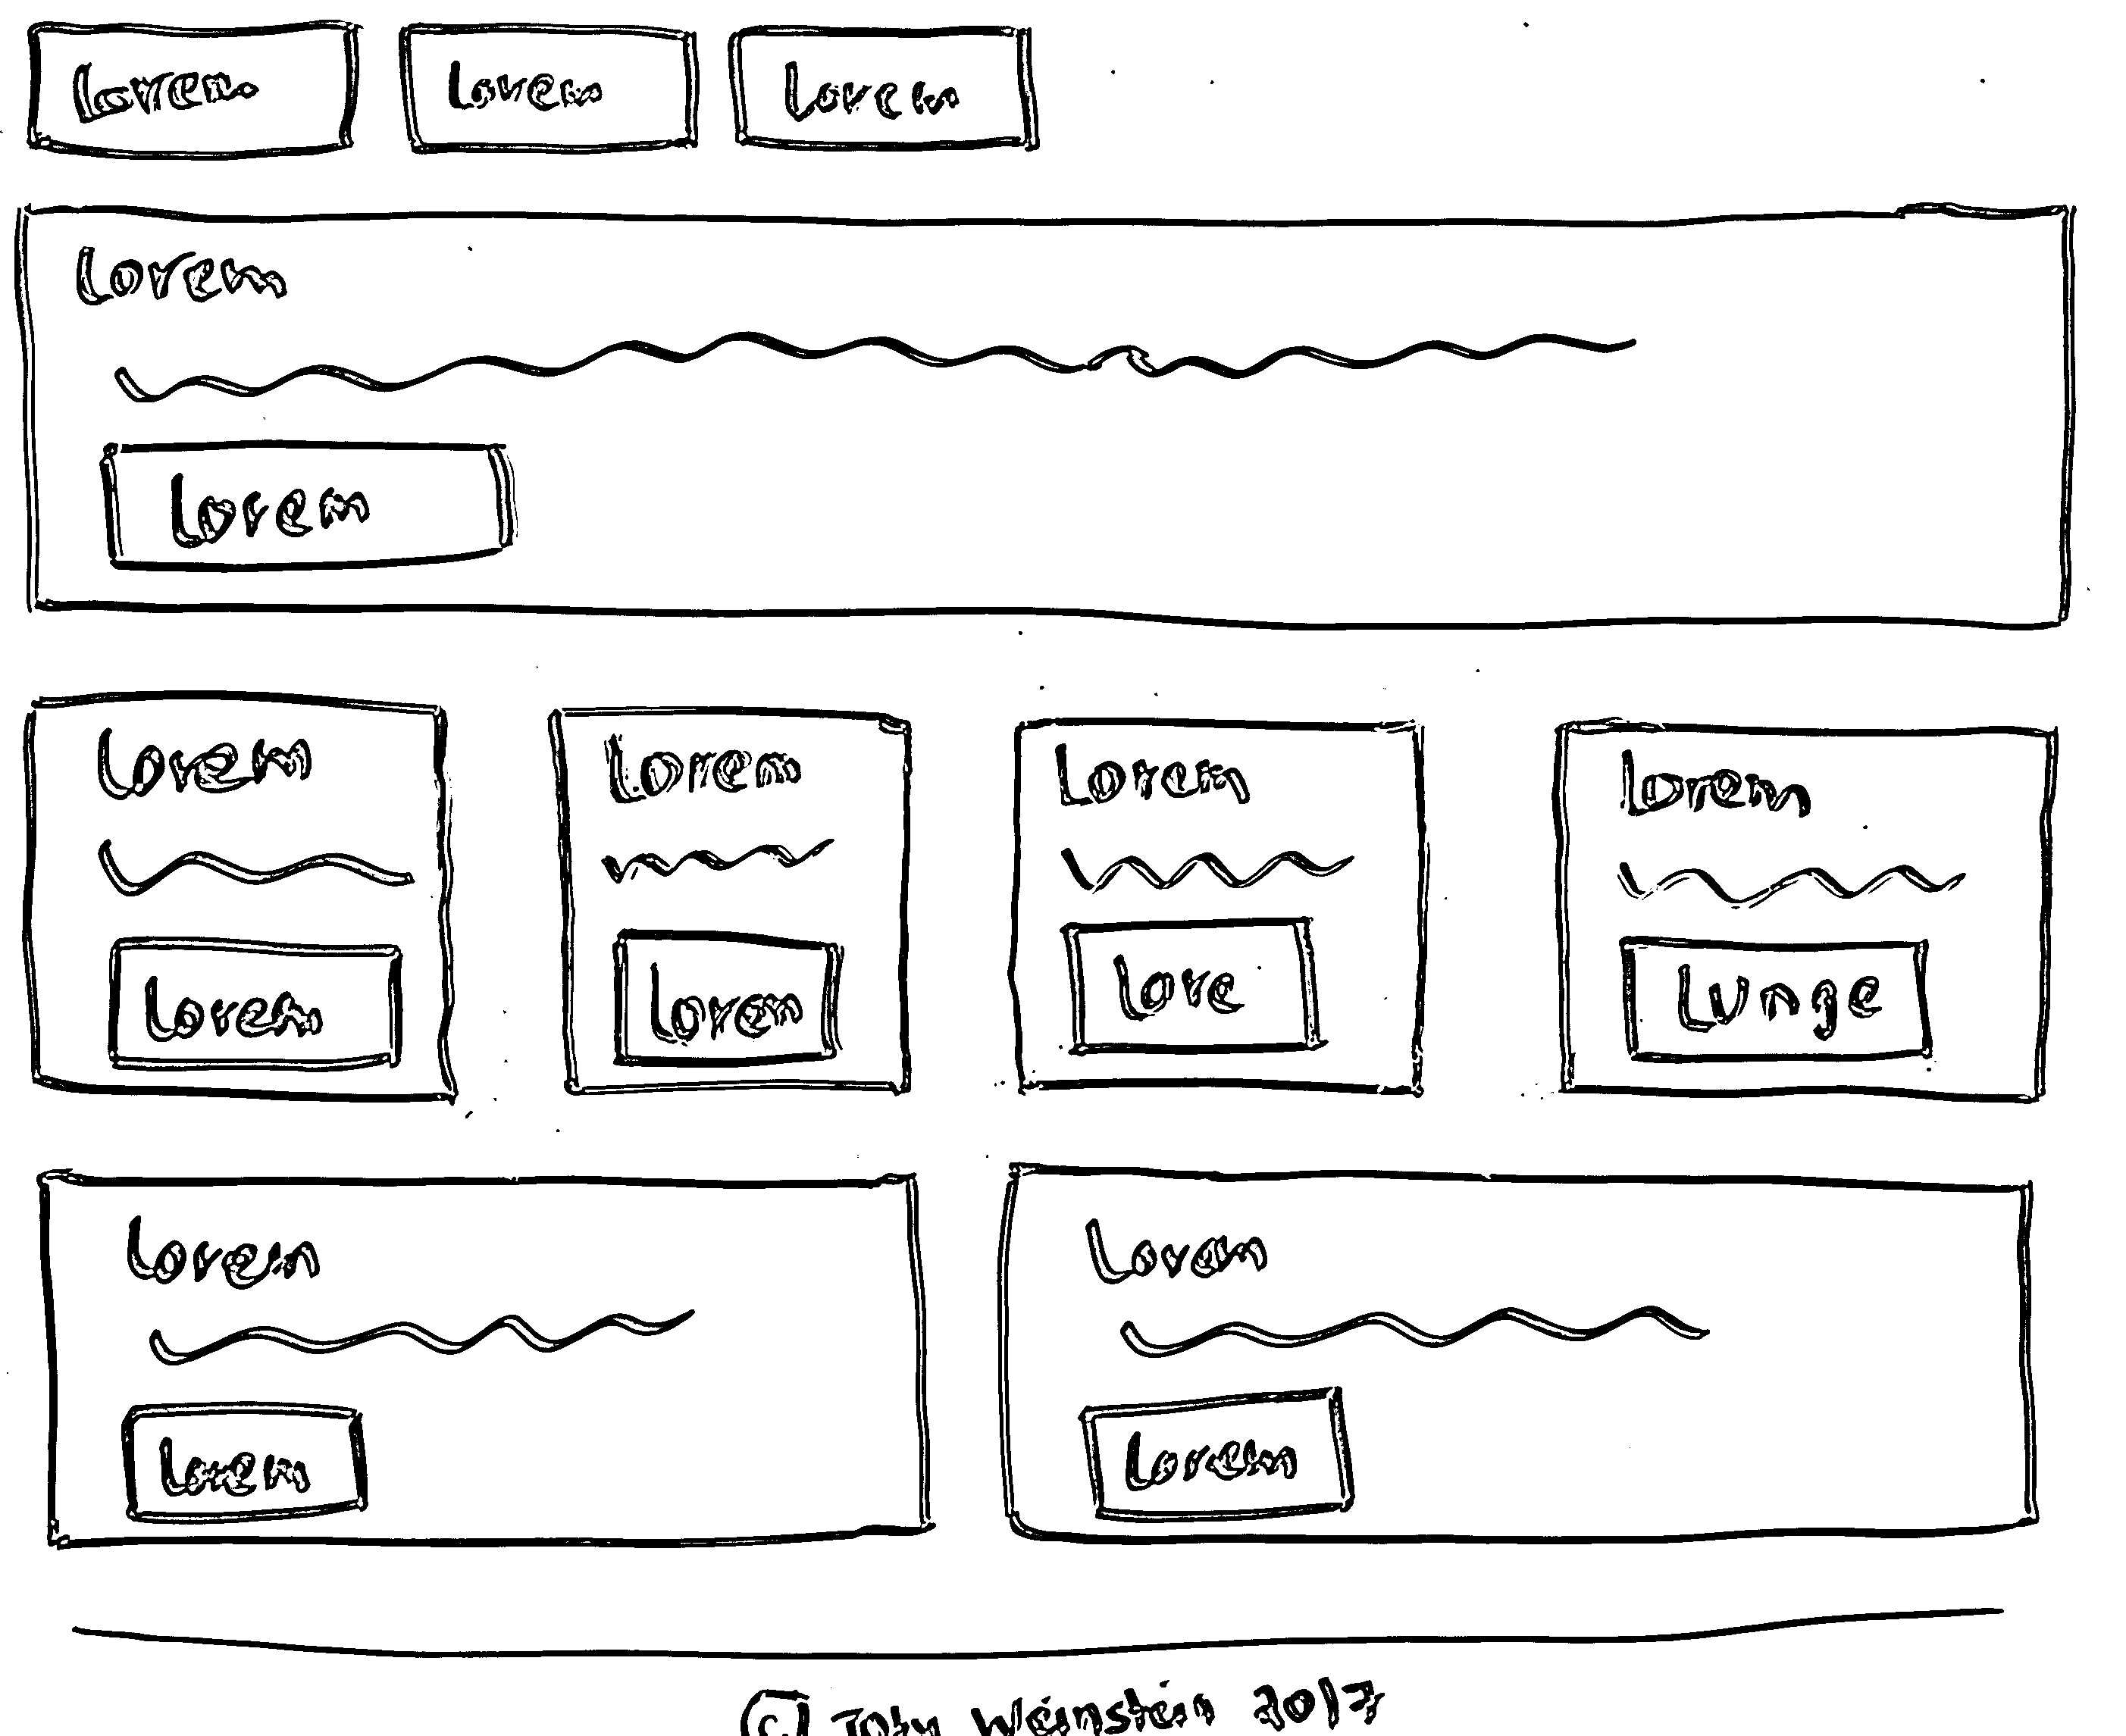 Lorem Lorem Lorem
Lorem
Lorem
Lorem Lorem Lorem Lorem
Lorem Lorem Lore Lunge
Lorem Lorem
Lorem Lorem
© Toby Weinstein 2017